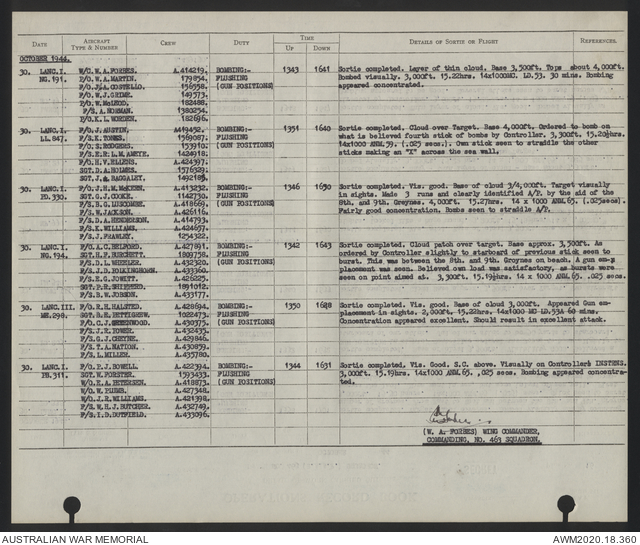 DATE AIRCRAFT TYPE & NUMBER CREW DUTY TIME UP DOWN DETAILS OF SORTIE OR FLIGHT REFERENCES
OCTOBER 1944.
30. LANC.I. W/C.W.A.FORBES. A.414219. BOMBING:- 1343 1641 Sortie completed. Layer of thin cloud. Base 3,500ft. Tops about 4,000ft.
NG.191. P/O.W.A.MARTIN. 179854. FLUSHING Bombed visually. 3,000ft. 15.22hrs. 14x1000MC. LD.53. 30 mins. Bombing
F/O.J.A.COSTELLO. 156558. (GUN POSITIONS) appeared concentrated.
F/O.W.J.GRIME. 149573.
F/O.W.McLEOD. 182488.
F/S.A.NORMAN. 1380254.
P/O.K.L.WORDEN. 182696.
30. LANC.I. F/O.J.ANSTIN. A419452. BOMBING:- 1351 1640 Sortie completed. Cloud over Target. Base 4,000ft. Ordered to bomb on
LL.847. F/S.K.TONES. 1569087. FLUSHING what is believed fourth stick of bombs by Controller. 3,300ft. 15.20½hrs.
F/O.S.RODGERS. 153910. (GUN POSITIONS) 14x1000 ANM.59. (.025 secs.) Own stick seen to straddle the other
F/S.E.R.L.M.AMEYE. 1424918. sticks making an "X" across the sea wall.
F/O.H.V.ELLENS. A.424397.
SGT.D.A.HOLMES. 1576329.
SGT.J.A.HAGGALEY. 1492185.
30. LANC.I. F/O.J.H.M.McKERN. A.413232. BOMBING:- 1346 1650 Sortie completed. Vis. good. Base of cloud 3/4,000ft. Target visually
PD.330. SGT.G.J.COOKE. 1142730. FLUSHING in sights. Made 3 runs and clearly identified A/P. by the aid of the
F/S.B.G.LUSCOMBE. A.418669. (GUN POSITIONS) 8th. and 9th. Greynes. 4,000ft. 15.27hrs. 14 x 1000 ANM.65. (.025secs)
F/S.W.JACKSON. A.426116. Fairly good concentration. Bombs seen to straddle A/P.
F/S.D.A.HENDERSON. A.414793.
F/S.K.WILLIAMS. A.424657.
F/S.J.FRAWLEY. 1254322.
30. LANC.I. F/O.A.C.BELFORD. A.427891. BOMBING:- 1342 1643 Sortie completed. Cloud patch over target. Base approx. 3,500ft. As
NG.194. SGT.H.F.BURCHETT. 1809758. FLUSHING ordered by Controller slightly to starboard of previous stick seen to
F/S.D.L.WHEELER. A.432320. (GUN POSITIONS) burst. This was between the 8th. and 9th. Groynes on beach. A gun em-
F/S.J.D.FOLKINGHORN. A.433360. placement was seen. Believed own load was satisfactory, as bursts were
F/S.E.G.JOWETT. A.426225. seen on point aimed at. 3,300ft. 15.19½hrs 14 x 1000 ANM.65. .025 secs.
SGT.P.R.SHIPTERD. 1891012.
F/S.B.W.JOBSON. A.433177.
30. LANC.III. F/O.R.H.HALSTED. A.428694. BOMBING:- 1350 1628 Sortie completed. Vis. good. Base of cloud 3,000ft. Appeared Gun em-
ME.298. SGT.R.H.PETTIGREW. 1022473. FLUSHING placement in sights. 2,000ft. 15.22hrs. 14x1000 MC LD.53A 60 mins.
F/O.C.J.GREENWOOD. A.430375. (GUN POSITIONS) Concentration appeared excellent. Should result in excellent attack.
F/S.J.R.TOWER. A.432435.
F/S.G.J.CHEYNE. A.429846.
F/S.T.A.NATION. A.430859.
F/S.L.MILLER. A.435780.
30. LANC.I. F/O.P.J.BOWELL. A.422394. BOMBING:- 1344 1631 Sortie completed. Vis. Good. S.C. above. Visually on Controllers INSTENS.
PB.311. SGT.W.FORSTER. 1593433. FLUSHING 3,000ft. 15.19hrs. 14x1000 ANM.65. .025 secs. Bombing appeared concentra-
W/O.K.A.PETERSEN. A.418873. (GUN POSITIONS) ted.
W/O.W.PLUMB. A.427348.
W/O.J.R.WILLIAMS. A.421398.
F/S.W.H.J.BUTCHER. A.432749.
F/S.I.D.DUTFIELD. A.433096.
(W. A. FORBES) WING COMMANDER,
COMMANDING, NO. 463 SQUADRON.
AUSTRALIAN WAR MEMORIAL AWM2020.18.360